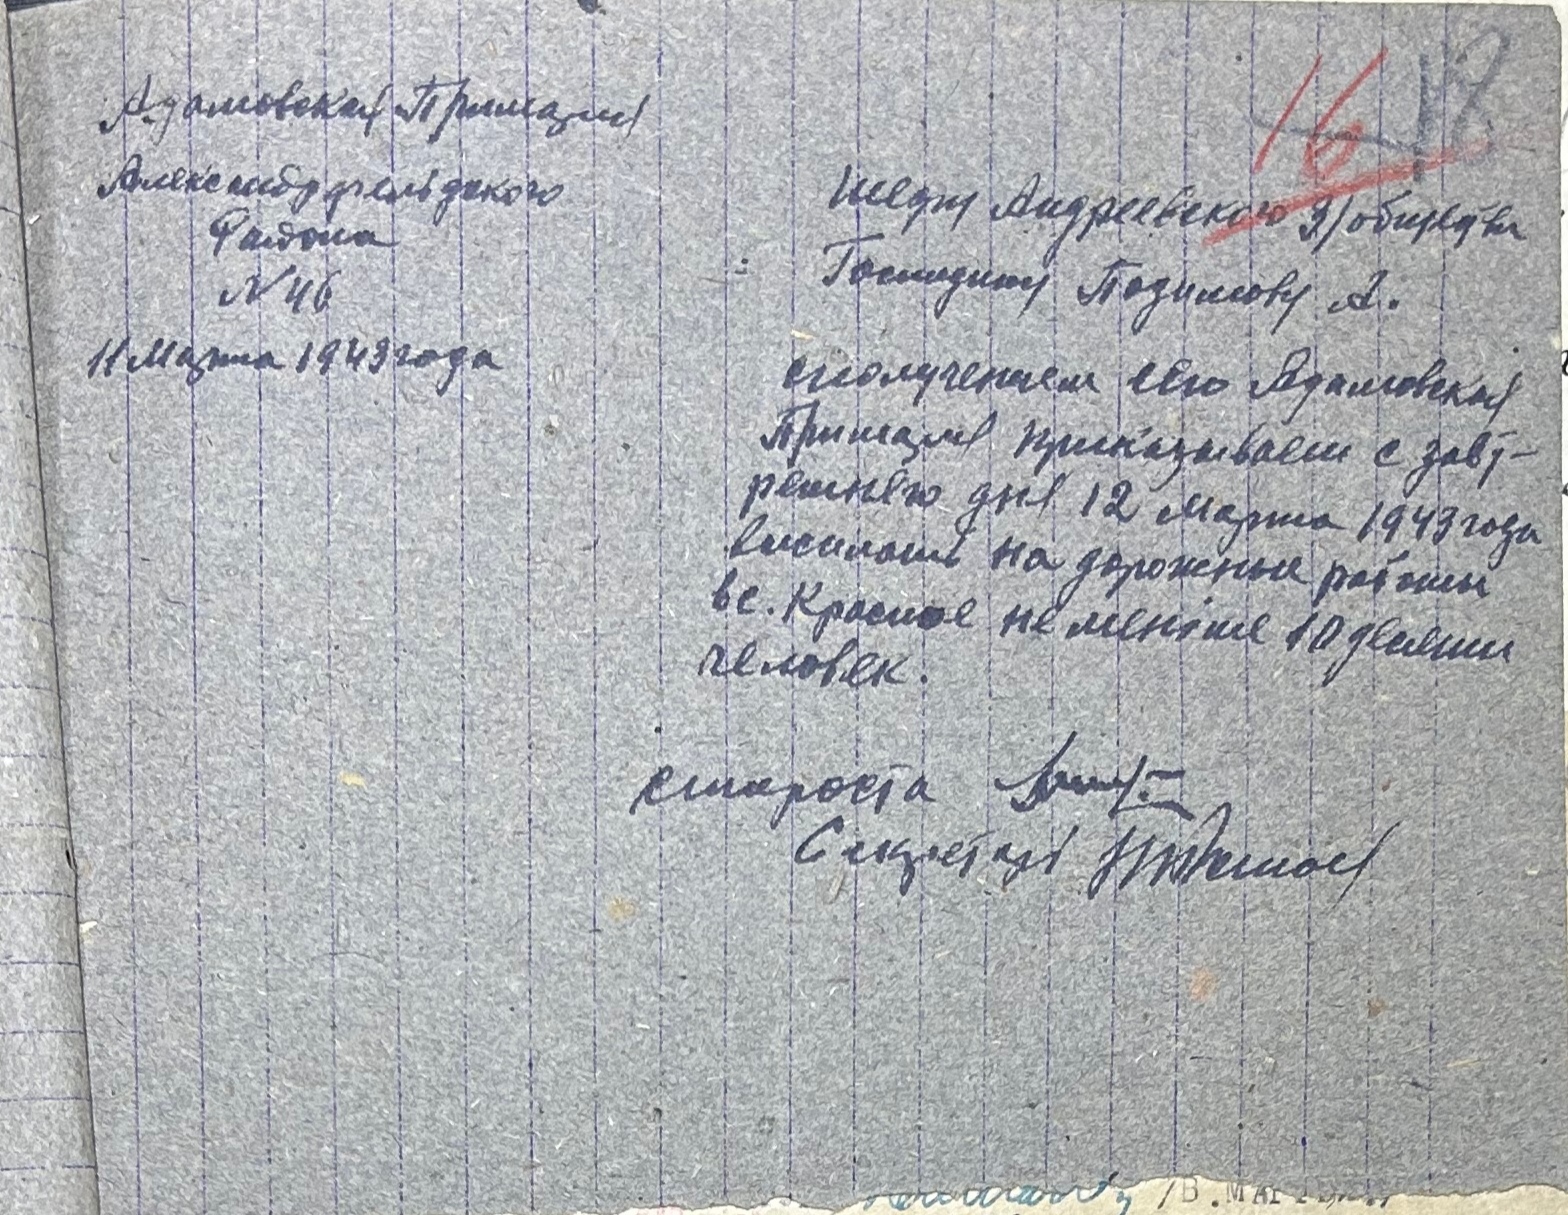 Адамовская Примария
Александерфельдского
Района
№ 46
11 Марта 1943 года
16
Шефу Андреевского З/общества
Господину Позимову А.
сполучением сего Адамовская
Примария приказывает с завт-
решнего дня 12 марта 1943 года
висилать на дорожные работы
в с. Красное не меньше 10 десяти
человек.
староста
Секретарь
/В.